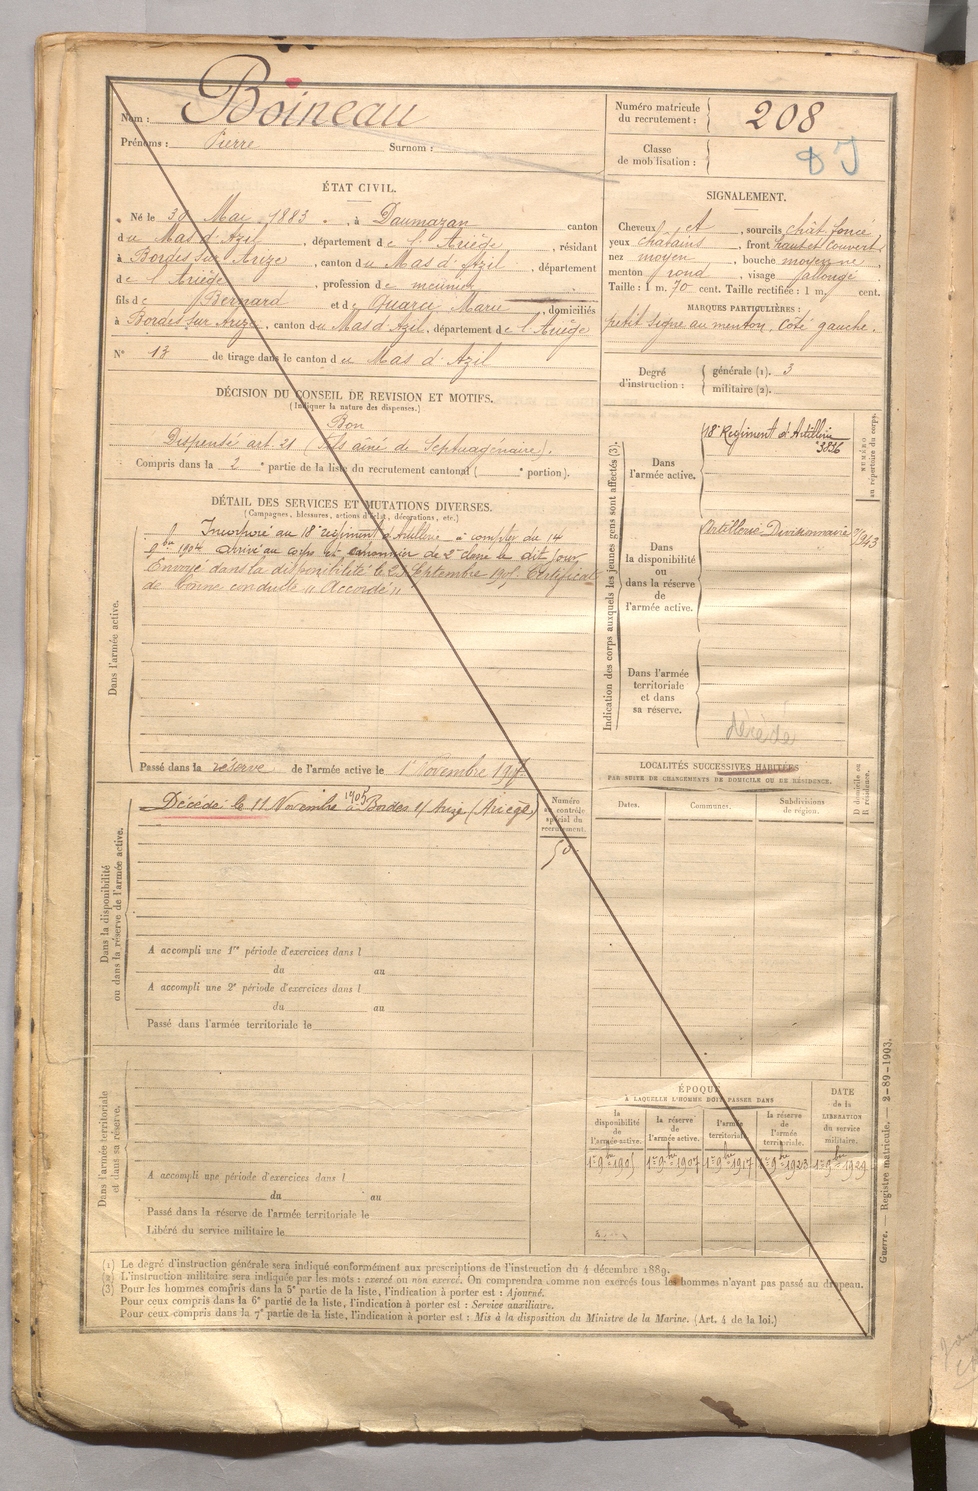 Nom : Boineau
Prénoms : Pierre Surnom :
Numéro matricule du recrutement : 208
Classe de mobilisation :
ÉTAT CIVIL.
Né le 30 Mai 1883, à Daumazan canton
du Mas d'Azil, département de l'Ariège, résidant
à Bordes sur Arize, canton du Mas d'Azil, département
de l'Ariège, profession de meunier
fils de Bernard et de Marie, domiciliés
à Bordes sur Arize, canton du Mas d'Azil, département de l'Ariège
N° 13 de tirage dans le canton du Mas d'Azil
SIGNALEMENT.
Cheveux, sourcils chât. foncé
yeux châtains, front haut et couvert
nez moyen, bouche moyenne,
menton rond, visage allongé
Taille : 1 m. 70 cent. Taille rectifiée : 1 m. cent.
MARQUES PARTICULIÈRES :
petit signe au menton, côté gauche.
Degré d'instruction : générale (1). 3
militaire (2).
DÉCISION DU CONSEIL DE REVISION ET MOTIFS.
(Indiquer la nature des dispenses.)
Bon
Dispensé art. 21 (fils aîné de Septuagénaire).
Compris dans la 2e partie de la liste du recrutement cantonal ( e portion).
DÉTAIL DES SERVICES ET MUTATIONS DIVERSES.
(Campagnes, blessures, actions d'éclat, décorations, etc.)
Dans l'armée active.
Incorporé au 18e régiment d'Artillerie à compter du 14
9bre 1904 arrivé au corps et canonnier de 2e classe le dit jour.
Envoyé dans la disponibilité le Septembre 1905. Certificat
de bonne conduite "Accordé"
Passé dans la réserve de l'armée active le 1er Novembre 190
Indication des corps auxquels les jeunes gens sont affectés (3).
NUMÉRO au répertoire du corps.
Dans l'armée active.
18e Régiment d'Artillerie
3836
Dans la disponibilité ou dans la réserve de l'armée active.
Artillerie Divisionnaire
Dans l'armée territoriale et dans sa réserve.
décédé
LOCALITÉS SUCCESSIVES HABITÉES
PAR SUITE DE CHANGEMENTS DE DOMICILE OU DE RÉSIDENCE.
Dates. Communes. Subdivisions de région. D domicile ou R résidence.
Dans la disponibilité ou dans la réserve de l'armée active.
Décédé le 11 Novembre 1905 à Bordes s/ Arize (Ariège)
Numéro au contrôle spécial du recrutement.
A accompli une 1re période d'exercices dans l
du au
A accompli une 2e période d'exercices dans l
du au
Passé dans l'armée territoriale le
Dans l'armée territoriale et dans sa réserve.
A accompli une période d'exercices dans l
du au
Passé dans la réserve de l'armée territoriale le
Libéré du service militaire le
ÉPOQUE
À LAQUELLE L'HOMME DOIT PASSER DANS
la disponibilité de l'armée active.
la réserve de l'armée active.
l'armée territoriale.
la réserve de l'armée territoriale.
DATE de la LIBÉRATION du service militaire.
1er 9bre 1905 1er 9bre 1907 1er 9bre 1917 1er 9bre 1923 1er 9bre 1929
Guerre. — Registre matricule. — 2-89-1903.
(1) Le degré d'instruction générale sera indiqué conformément aux prescriptions de l'instruction du 4 décembre 1889.
(2) L'instruction militaire sera indiquée par les mots : exercé ou non exercé. On comprendra comme non exercés tous les hommes n'ayant pas passé au drapeau.
(3) Pour les hommes compris dans la 5e partie de la liste, l'indication à porter est : Ajourné.
Pour ceux compris dans la 6e partie de la liste, l'indication à porter est : Service auxiliaire.
Pour ceux compris dans la 7e partie de la liste, l'indication à porter est : Mis à la disposition du Ministre de la Marine. (Art. 4 de la loi.)